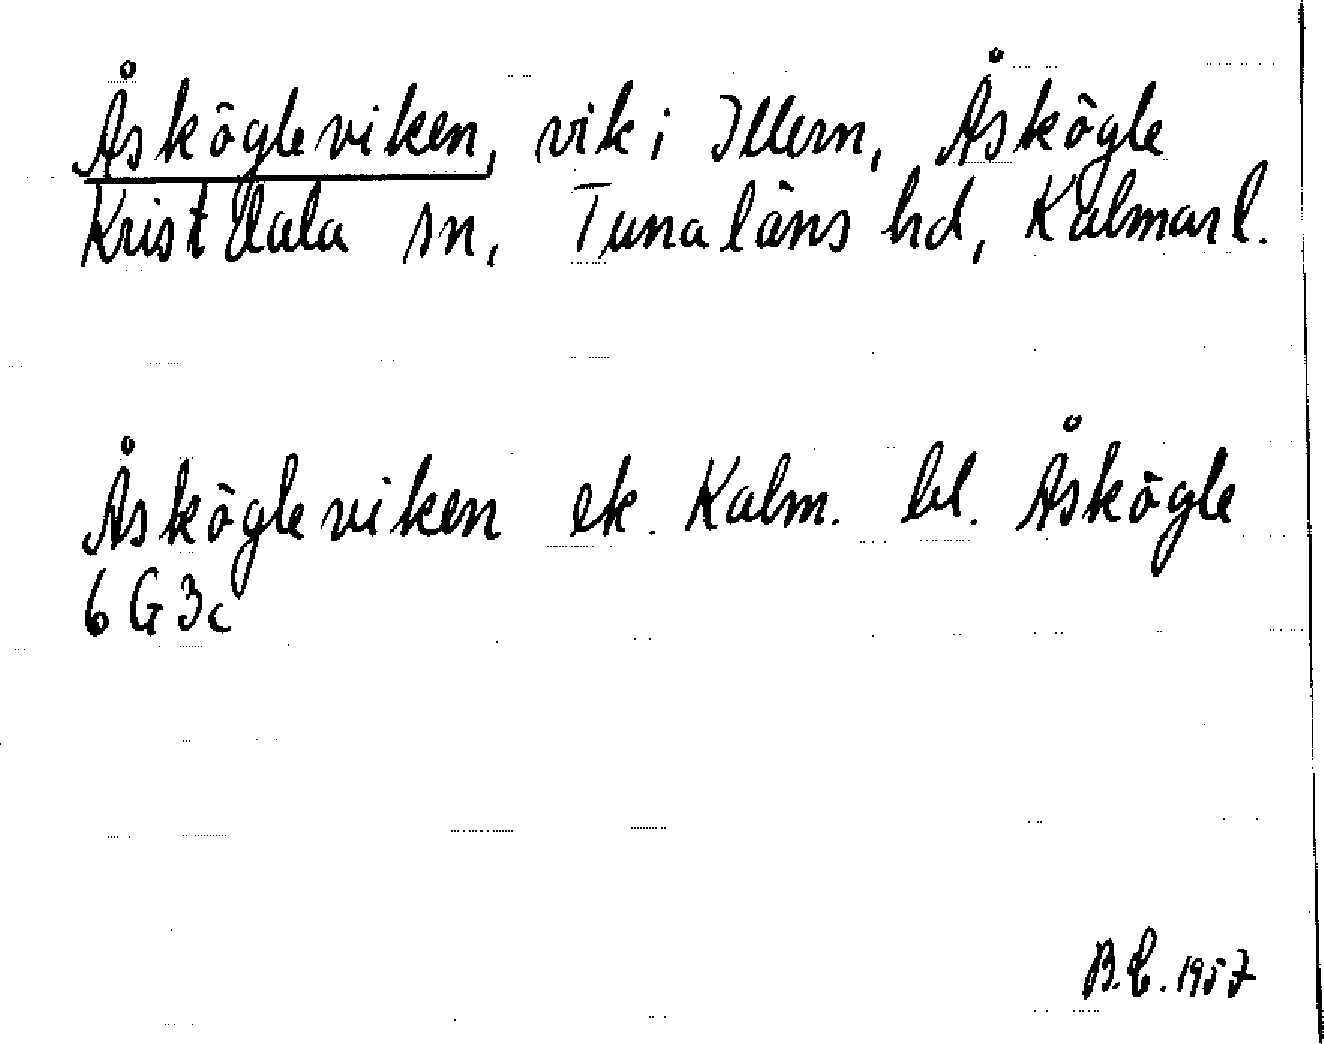 Åskögleviken, vik i Illern, Åskögle
Kristdala sn, Tunaläns hd, Kalmar l.
Åskögleviken ek. Kalm. bl. Åskögle
6 G 3c
B.E. 1957